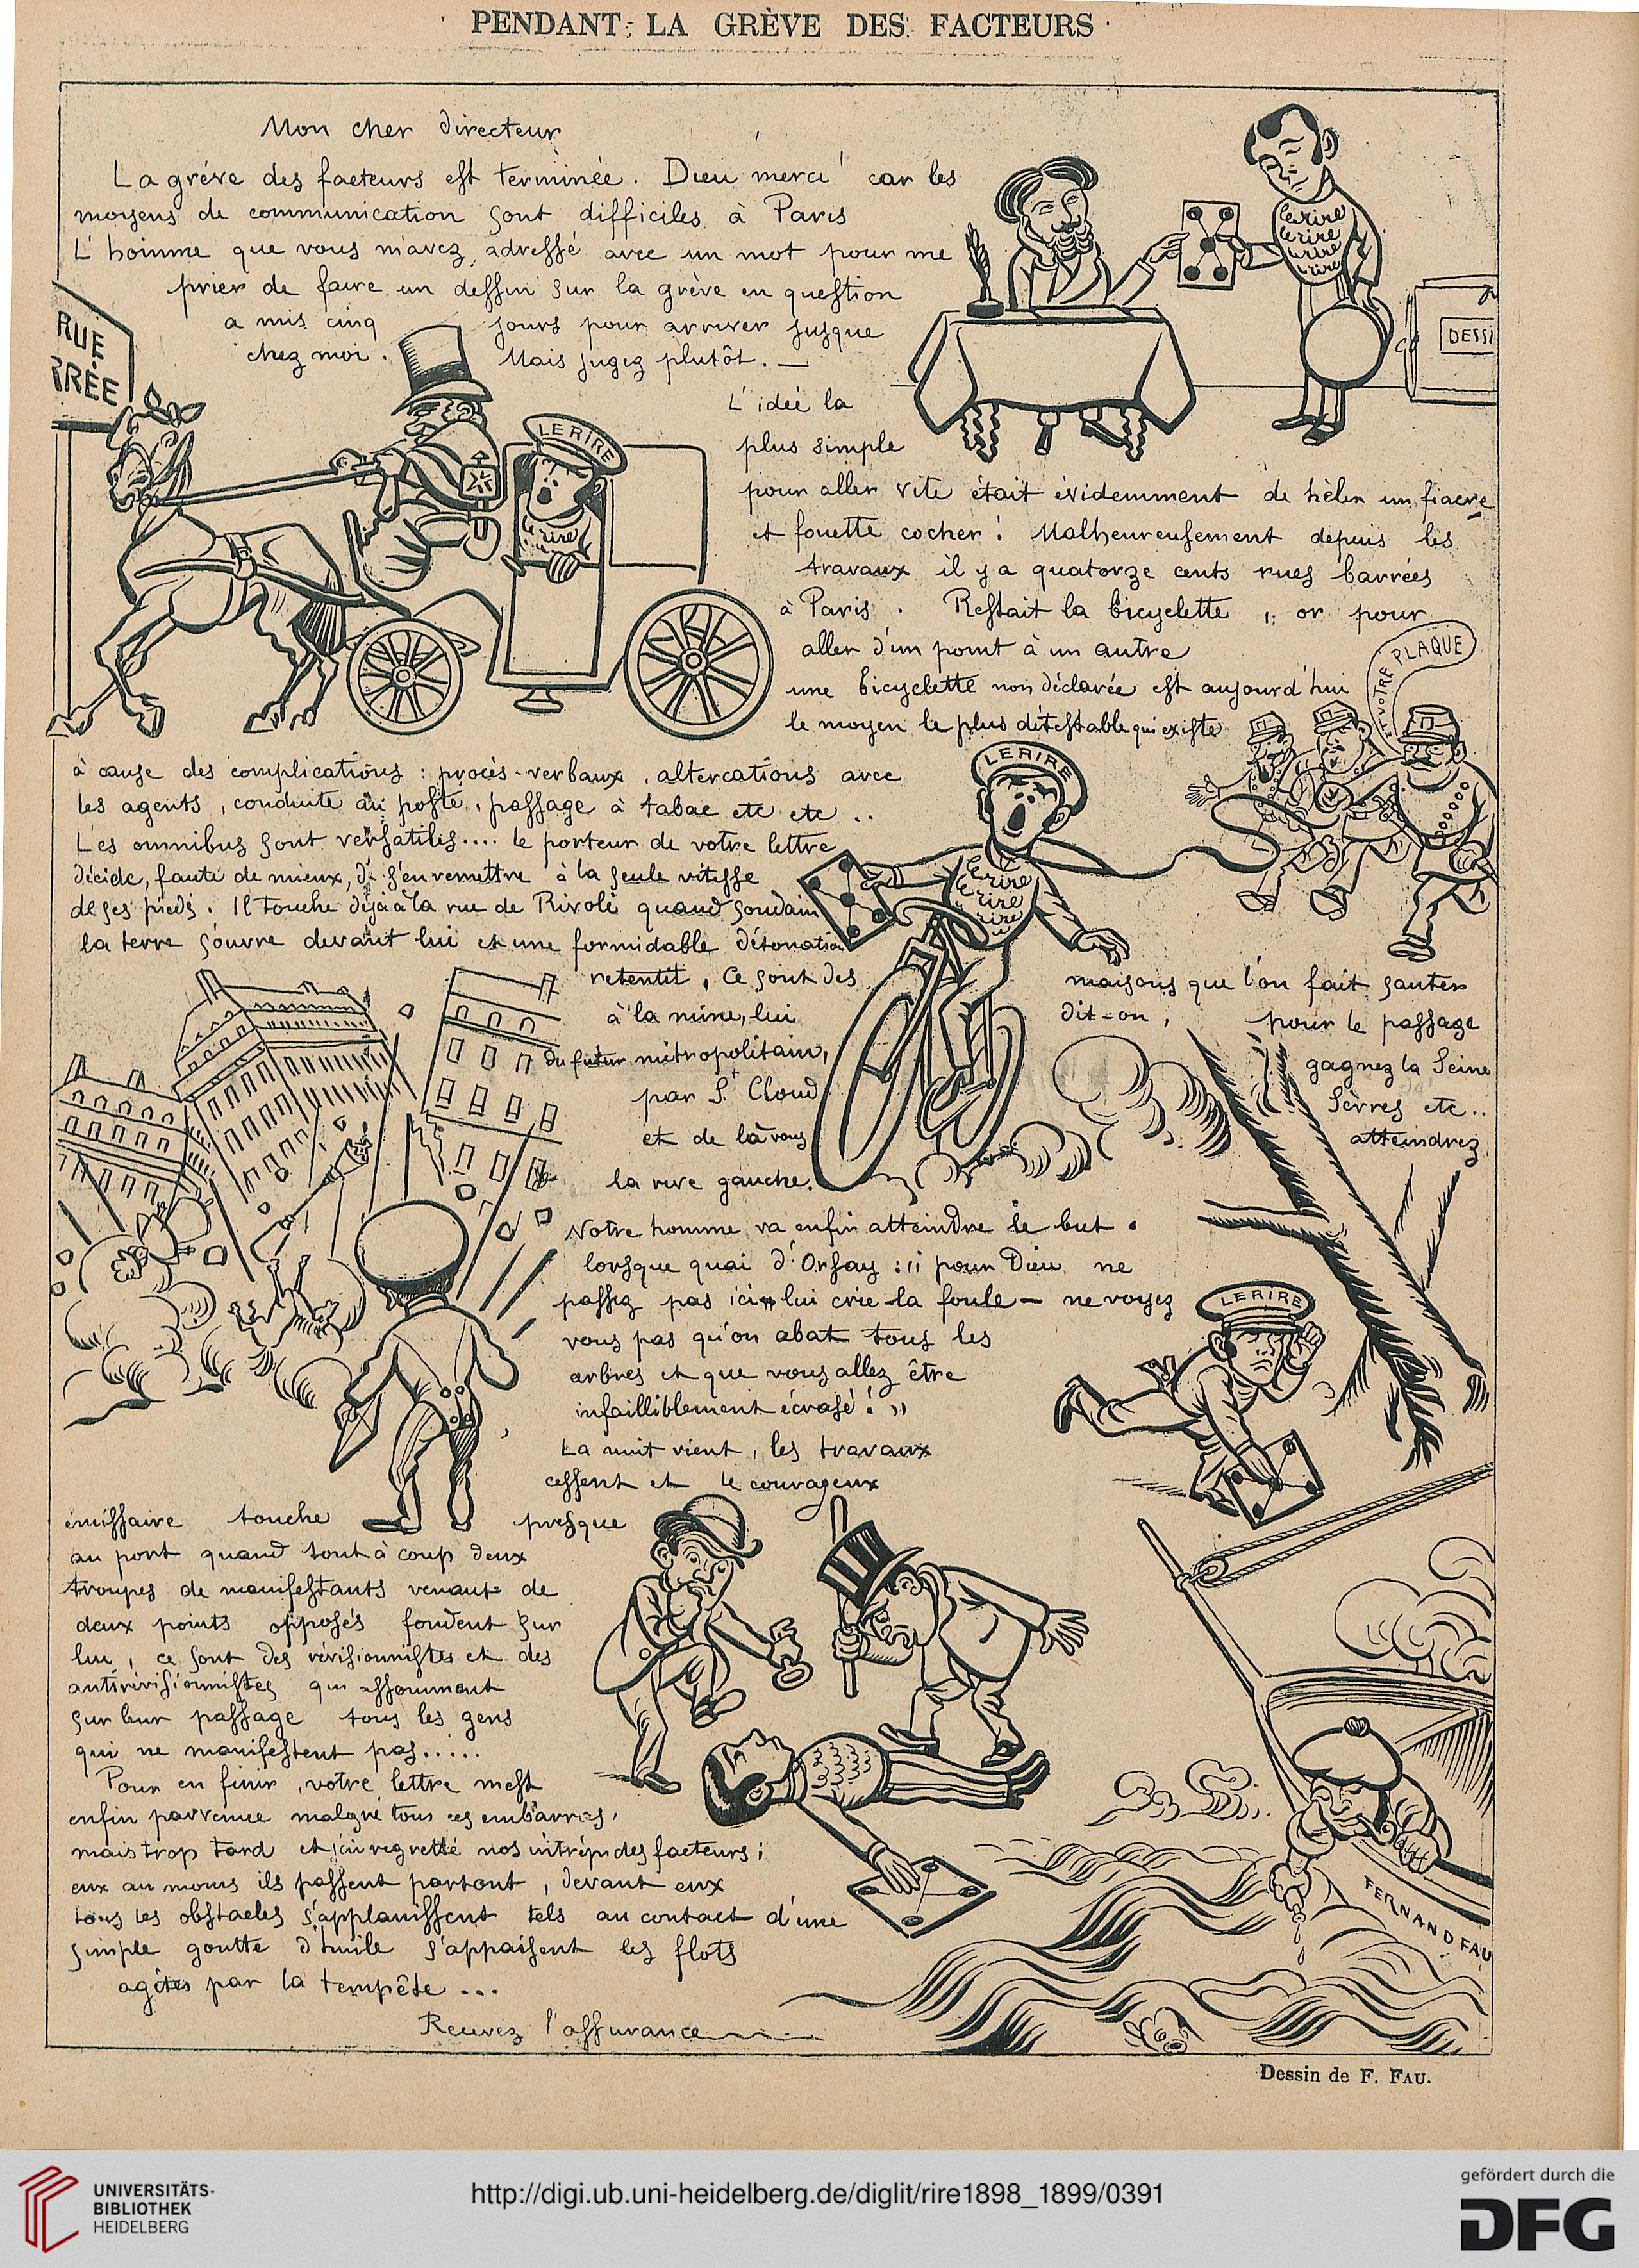 PENDANT LA GRÈVE DES FACTEURS
Mon cher Directeur
La grève des facteurs est terminée. Dieu merci ! car les
moyens de communication sont difficiles à Paris
L'homme que vous m'avez adressé avec un mot pour me
prier de faire un dessin sur la grève en question
a mis cinq jours pour arriver jusque
chez moi. Mais jugez plutôt. —
DESSI
RUE
RRÉE
LE RIRE
le rire
le rire
le rire
le rire
rire
L'idée la
plus simple
pour aller vite était évidemment de hèler un fiacre
et fouette cocher ! Malheureusement depuis les
travaux il y a quatorze cents rues barrées
à Paris. Restait la bicyclette, or pour
aller d'un point à un autre
une bicyclette non déclarée est aujourd'hui
le moyen le plus détestable qui existe
ET VOTRE PLAQUE
à cause des complications : procès-verbaux, altercations avec
les agents, conduite au poste, passage à tabac etc etc ..
Les omnibus sont versatiles.... le porteur de votre lettre
décide, faute de mieux, d's'en remettre à la seule vitesse
de ses pieds. Il touche déjà à la rue de Rivoli quand soudain
la terre s'ouvre devant lui et une formidable détonation
LE RIRE
le rire
le rire
rire
retentit, Ce sont des maisons que l'on fait sauter
à la mine, lui dit-on, pour le passage
du futur métropolitain, gagnez la Seine
par St Cloud Sèvres etc..
et de là vous atteindrez
la rive gauche.
Notre homme va enfin atteindre le but.
lorsque quai d'Orsay : " pour Dieu ne
passez pas ici" lui crie la foule — ne voyez
vous pas qu'on abat tous les
arbres et que vous allez être
infailliblement écrasé ! "
LE RIRE
La nuit vient, les travaux
cessent et le courageux
émissaire touche presque
au port quand tout à coup deux
troupes de manifestants venant de
deux points opposés fondent sur
lui, ce sont des révisionnistes et des
antirévisionnistes qui assomment
sur leur passage tous les gens
qui ne manifestent pas.....
Pour en finir, votre lettre m'est
enfin parvenue malgré tous ces embarras,
mais trop tard et j'ai regretté nos intrépides facteurs ;
eux au moins ils passent partout, devant eux
tous les obstacles s'applanissent tels au contact d'une
simple goutte d'huile s'appaisent les flots
agités par la tempête ...
Recevez l'assurance
FERNAND FAU
Dessin de F. FAU.
UNIVERSITÄTS-
BIBLIOTHEK
HEIDELBERG
http://digi.ub.uni-heidelberg.de/diglit/rire1898_1899/0391
gefördert durch die
DFG